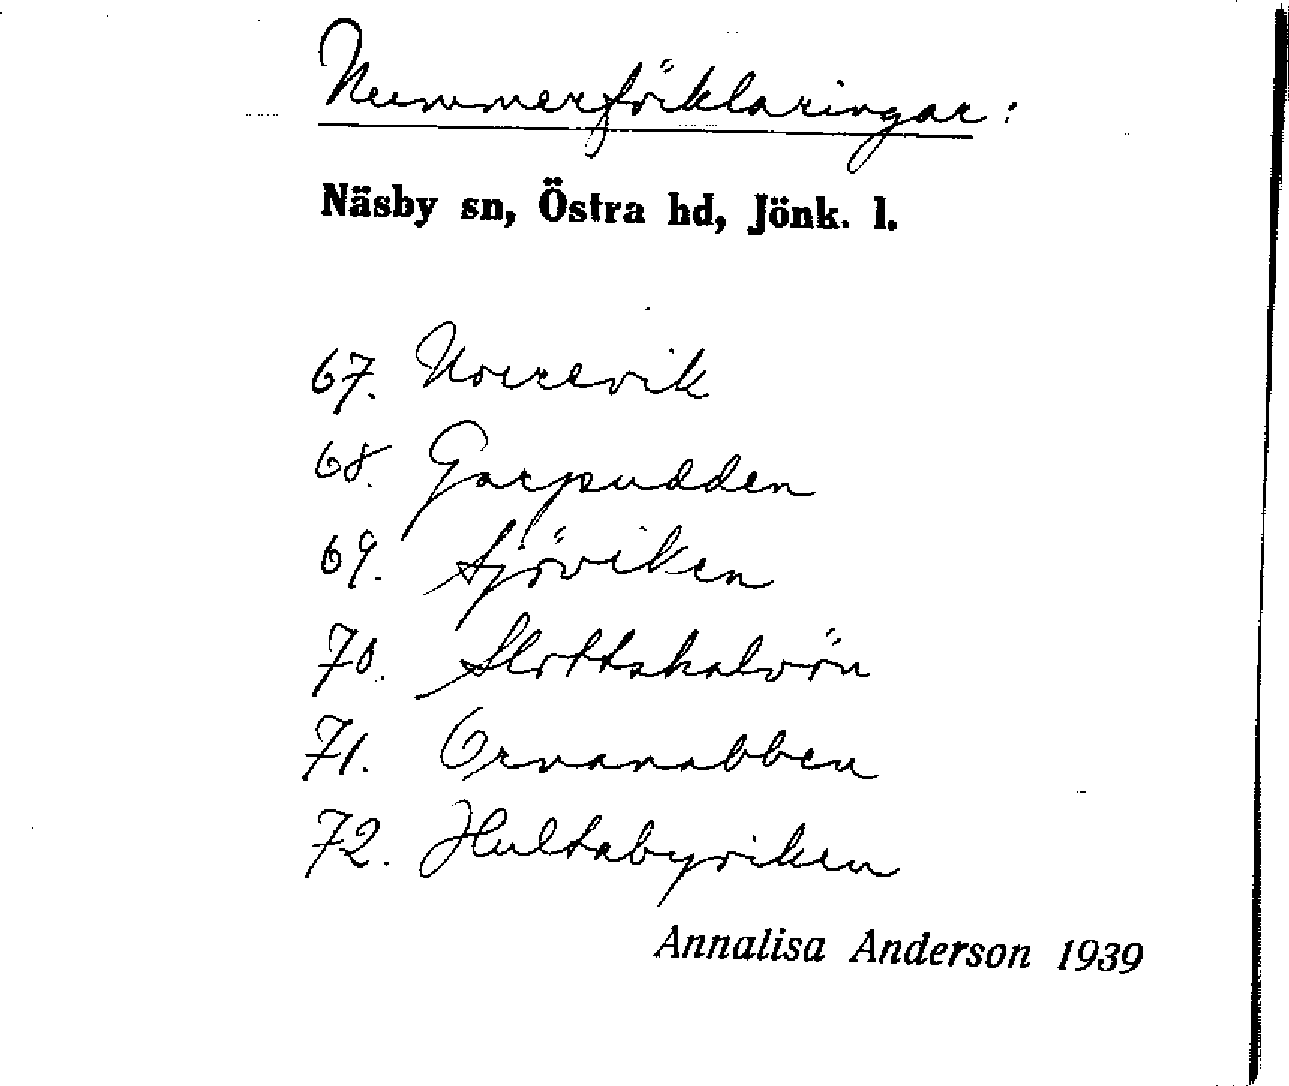 Nummerförklaringar:
Näsby sn, Östra hd, Jönk. l.
67. Norrevik
68. Garpudden
69. Sjöviken
70. Slottshalvön
71. Ornanabben
72. Hultabyviken
Annalisa Anderson 1939